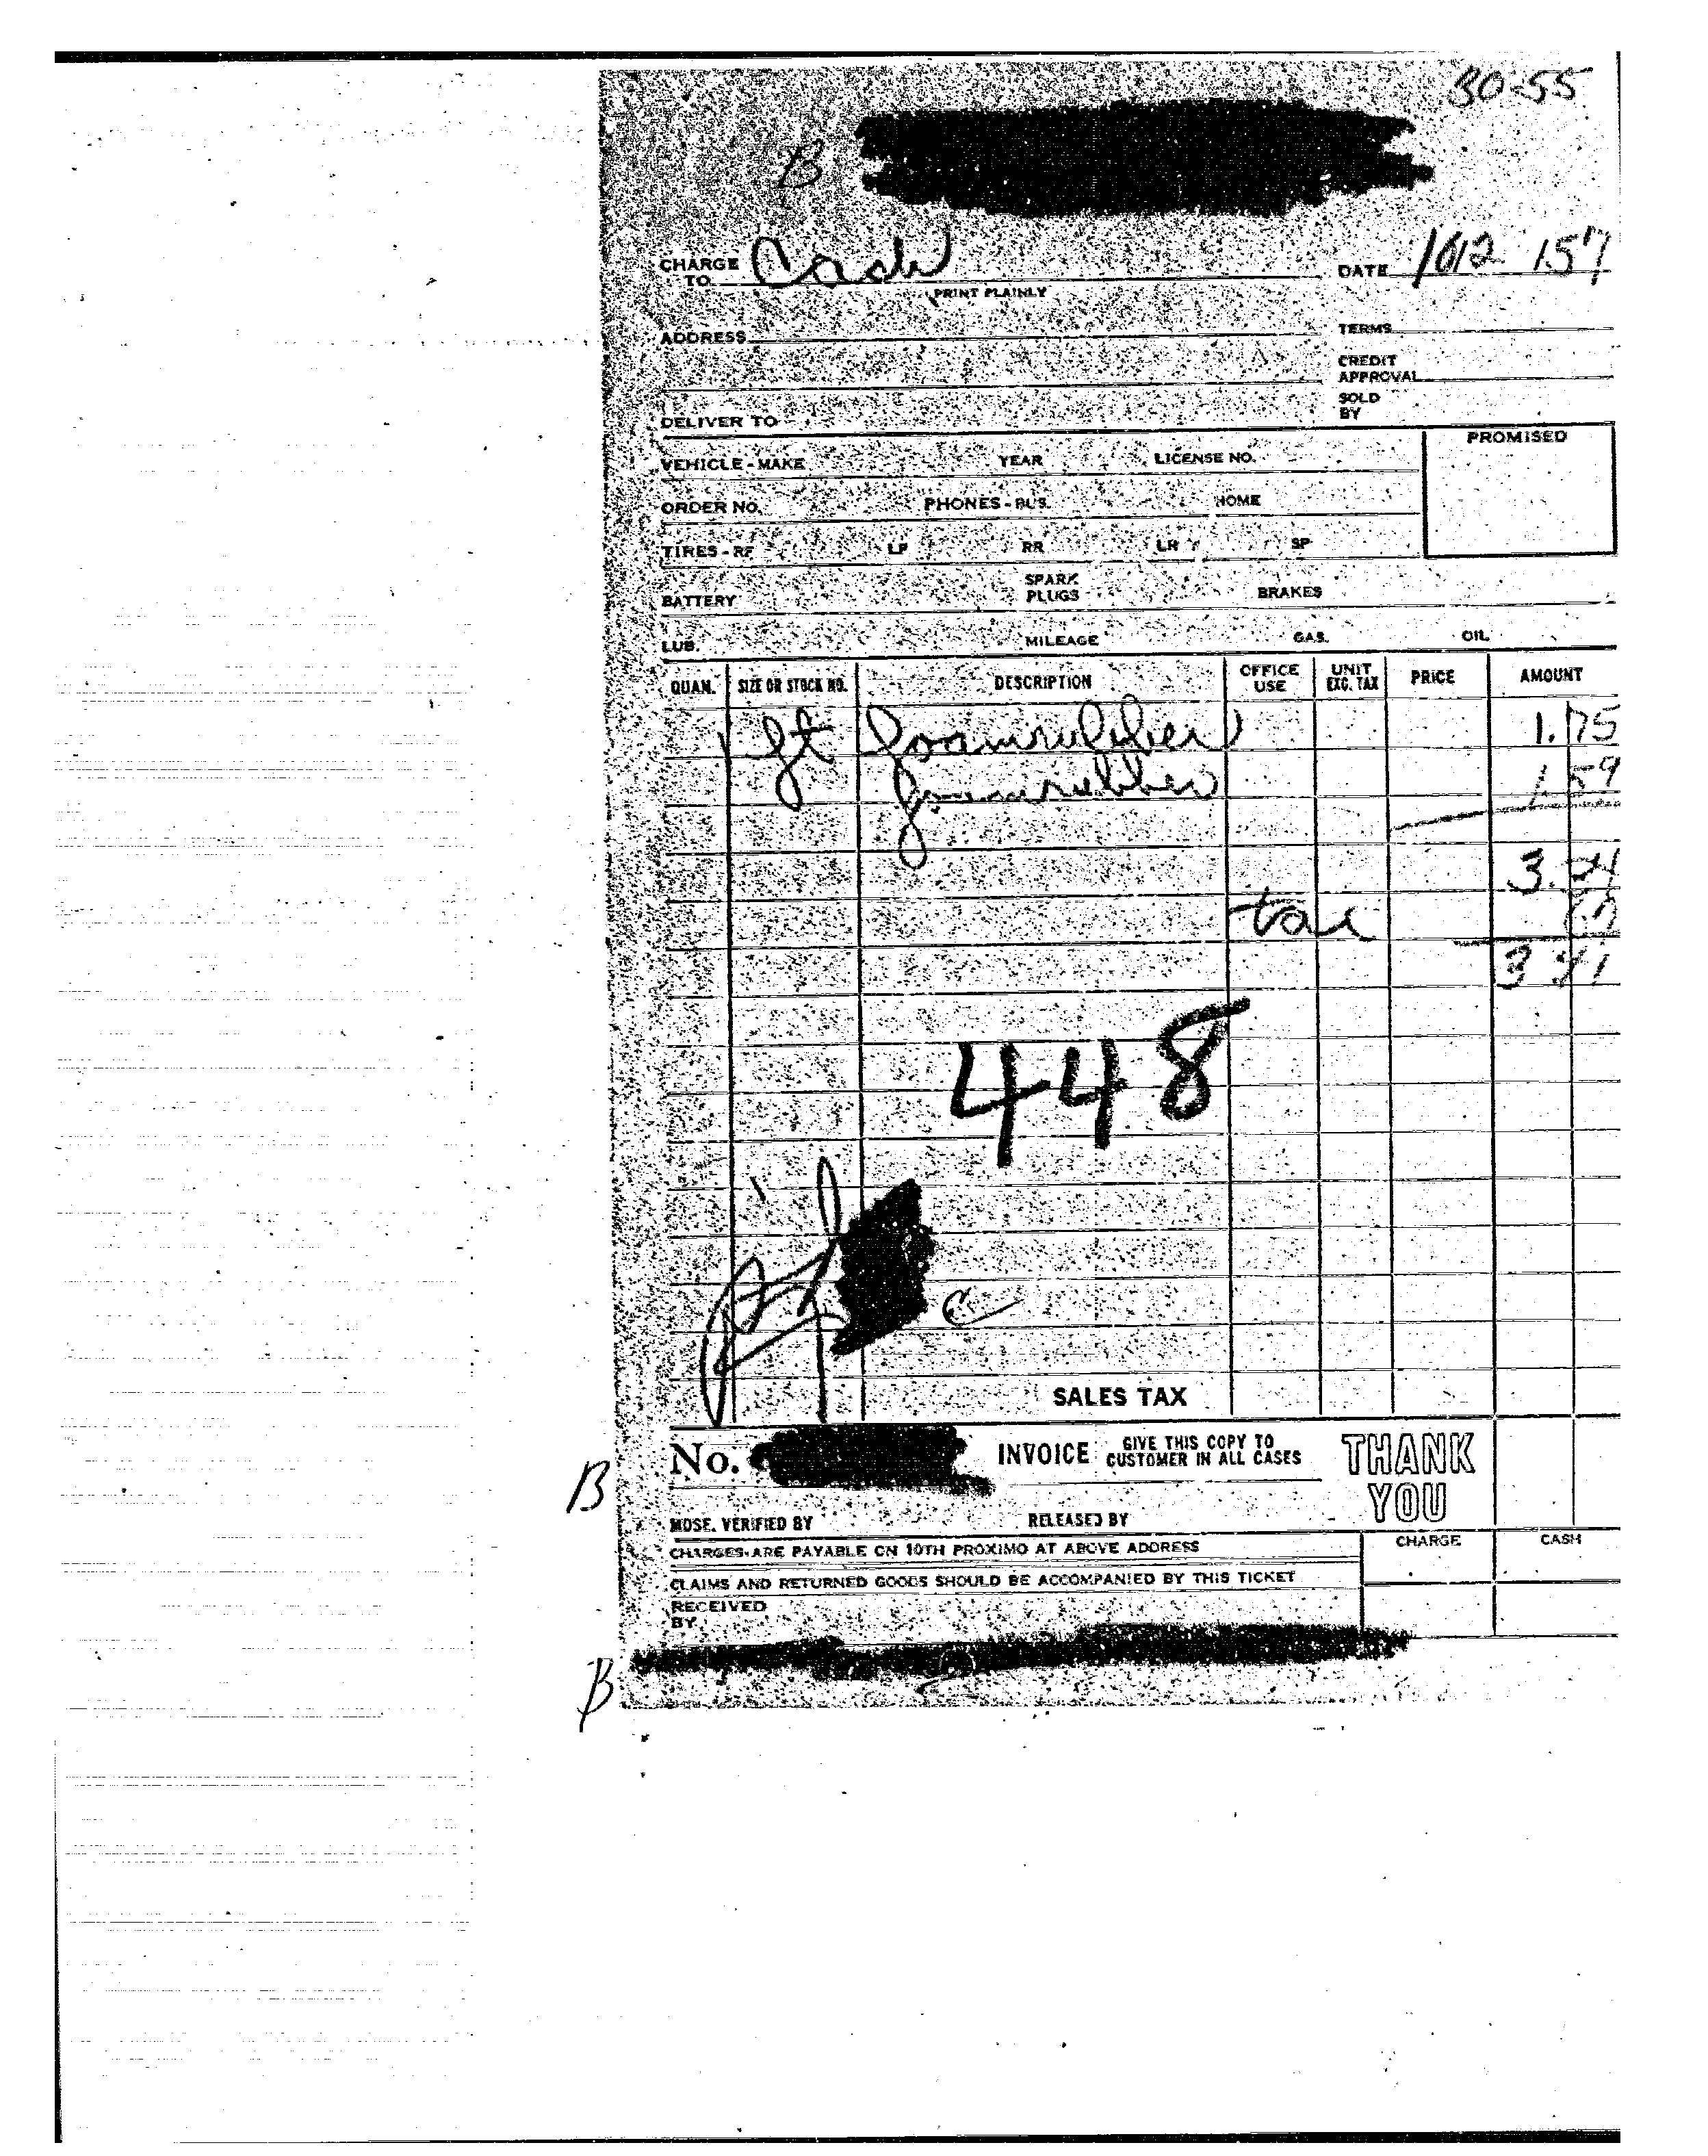 30-55
B
CHARGE TO Cash DATE 10/2 1957
PRINT PLAINLY
ADDRESS TERMS
CREDIT APPROVAL
SOLD BY
DELIVER TO
PROMISED
VEHICLE - MAKE YEAR LICENSE NO.
ORDER NO. PHONES - BUS. HOME
TIRES - RF LF RR LR SP
BATTERY SPARK PLUGS BRAKES
LUB. MILEAGE GAS. OIL
QUAN. SIZE OR STOCK NO. DESCRIPTION OFFICE USE UNIT EXC. TAX PRICE AMOUNT
1 ft foamrubber 1.75
foamrubber 1.59
3.34
tax
3 41
448
SALES TAX
B
No. INVOICE GIVE THIS COPY TO CUSTOMER IN ALL CASES THANK YOU
MDSE. VERIFIED BY RELEASED BY
CHARGES ARE PAYABLE ON 10TH PROXIMO AT ABOVE ADDRESS CHARGE CASH
CLAIMS AND RETURNED GOODS SHOULD BE ACCOMPANIED BY THIS TICKET
RECEIVED BY
B